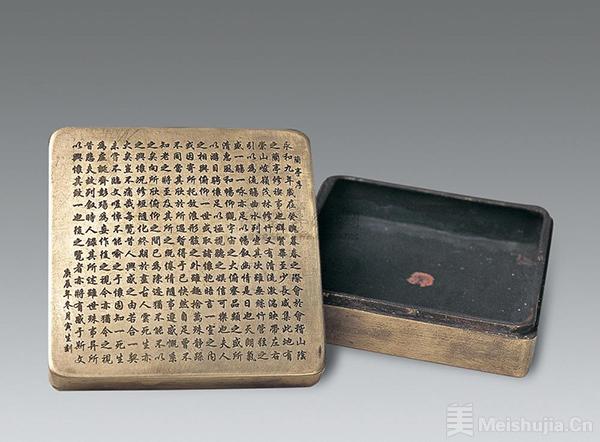 蘭亭序
永和九年歲在癸醜暮春之際會於會稽山陰
之蘭亭修禊事也群賢畢至少長咸集此地有
崇山峻嶺茂林修竹又有清流激湍映帶左右
引以為流觴曲水列坐其次雖無絲竹管弦之
盛一觴一詠亦足以暢敘幽情是日也天朗氣
清惠風和暢仰觀宇宙之大俯察品類之盛所
以遊目騁懷足以極視聽之娛信可樂也夫人
之相與俯仰一世或取諸懷抱晤言一室之內
或因寄所托放浪形骸之外雖趣舍萬殊靜躁
不同當其欣於所遇暫得於己快然自足曾不
知老之將至及其所之既倦情隨事遷感慨系
之矣向之所欣俯仰之間已為陳迹猶不能不以
之興懷況修短隨化終期於盡古人云死生亦
大矣豈不痛哉每覽昔人興感之由若合一契
未嘗不臨文嗟悼不能喻之於懷固知一死生
為虛誕齊彭殤為妄作後之視今亦猶今之視
昔悲夫故列敘時人錄其所述雖世殊事異所
以興懷其致一也後之覽者亦將有感於斯文
庚辰年冬月寅生刻
美 Meishujia.Cn